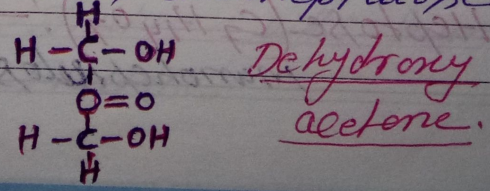 H
H - C - OH
O = O
H - C - OH
H
Dehydroxy
acetone.